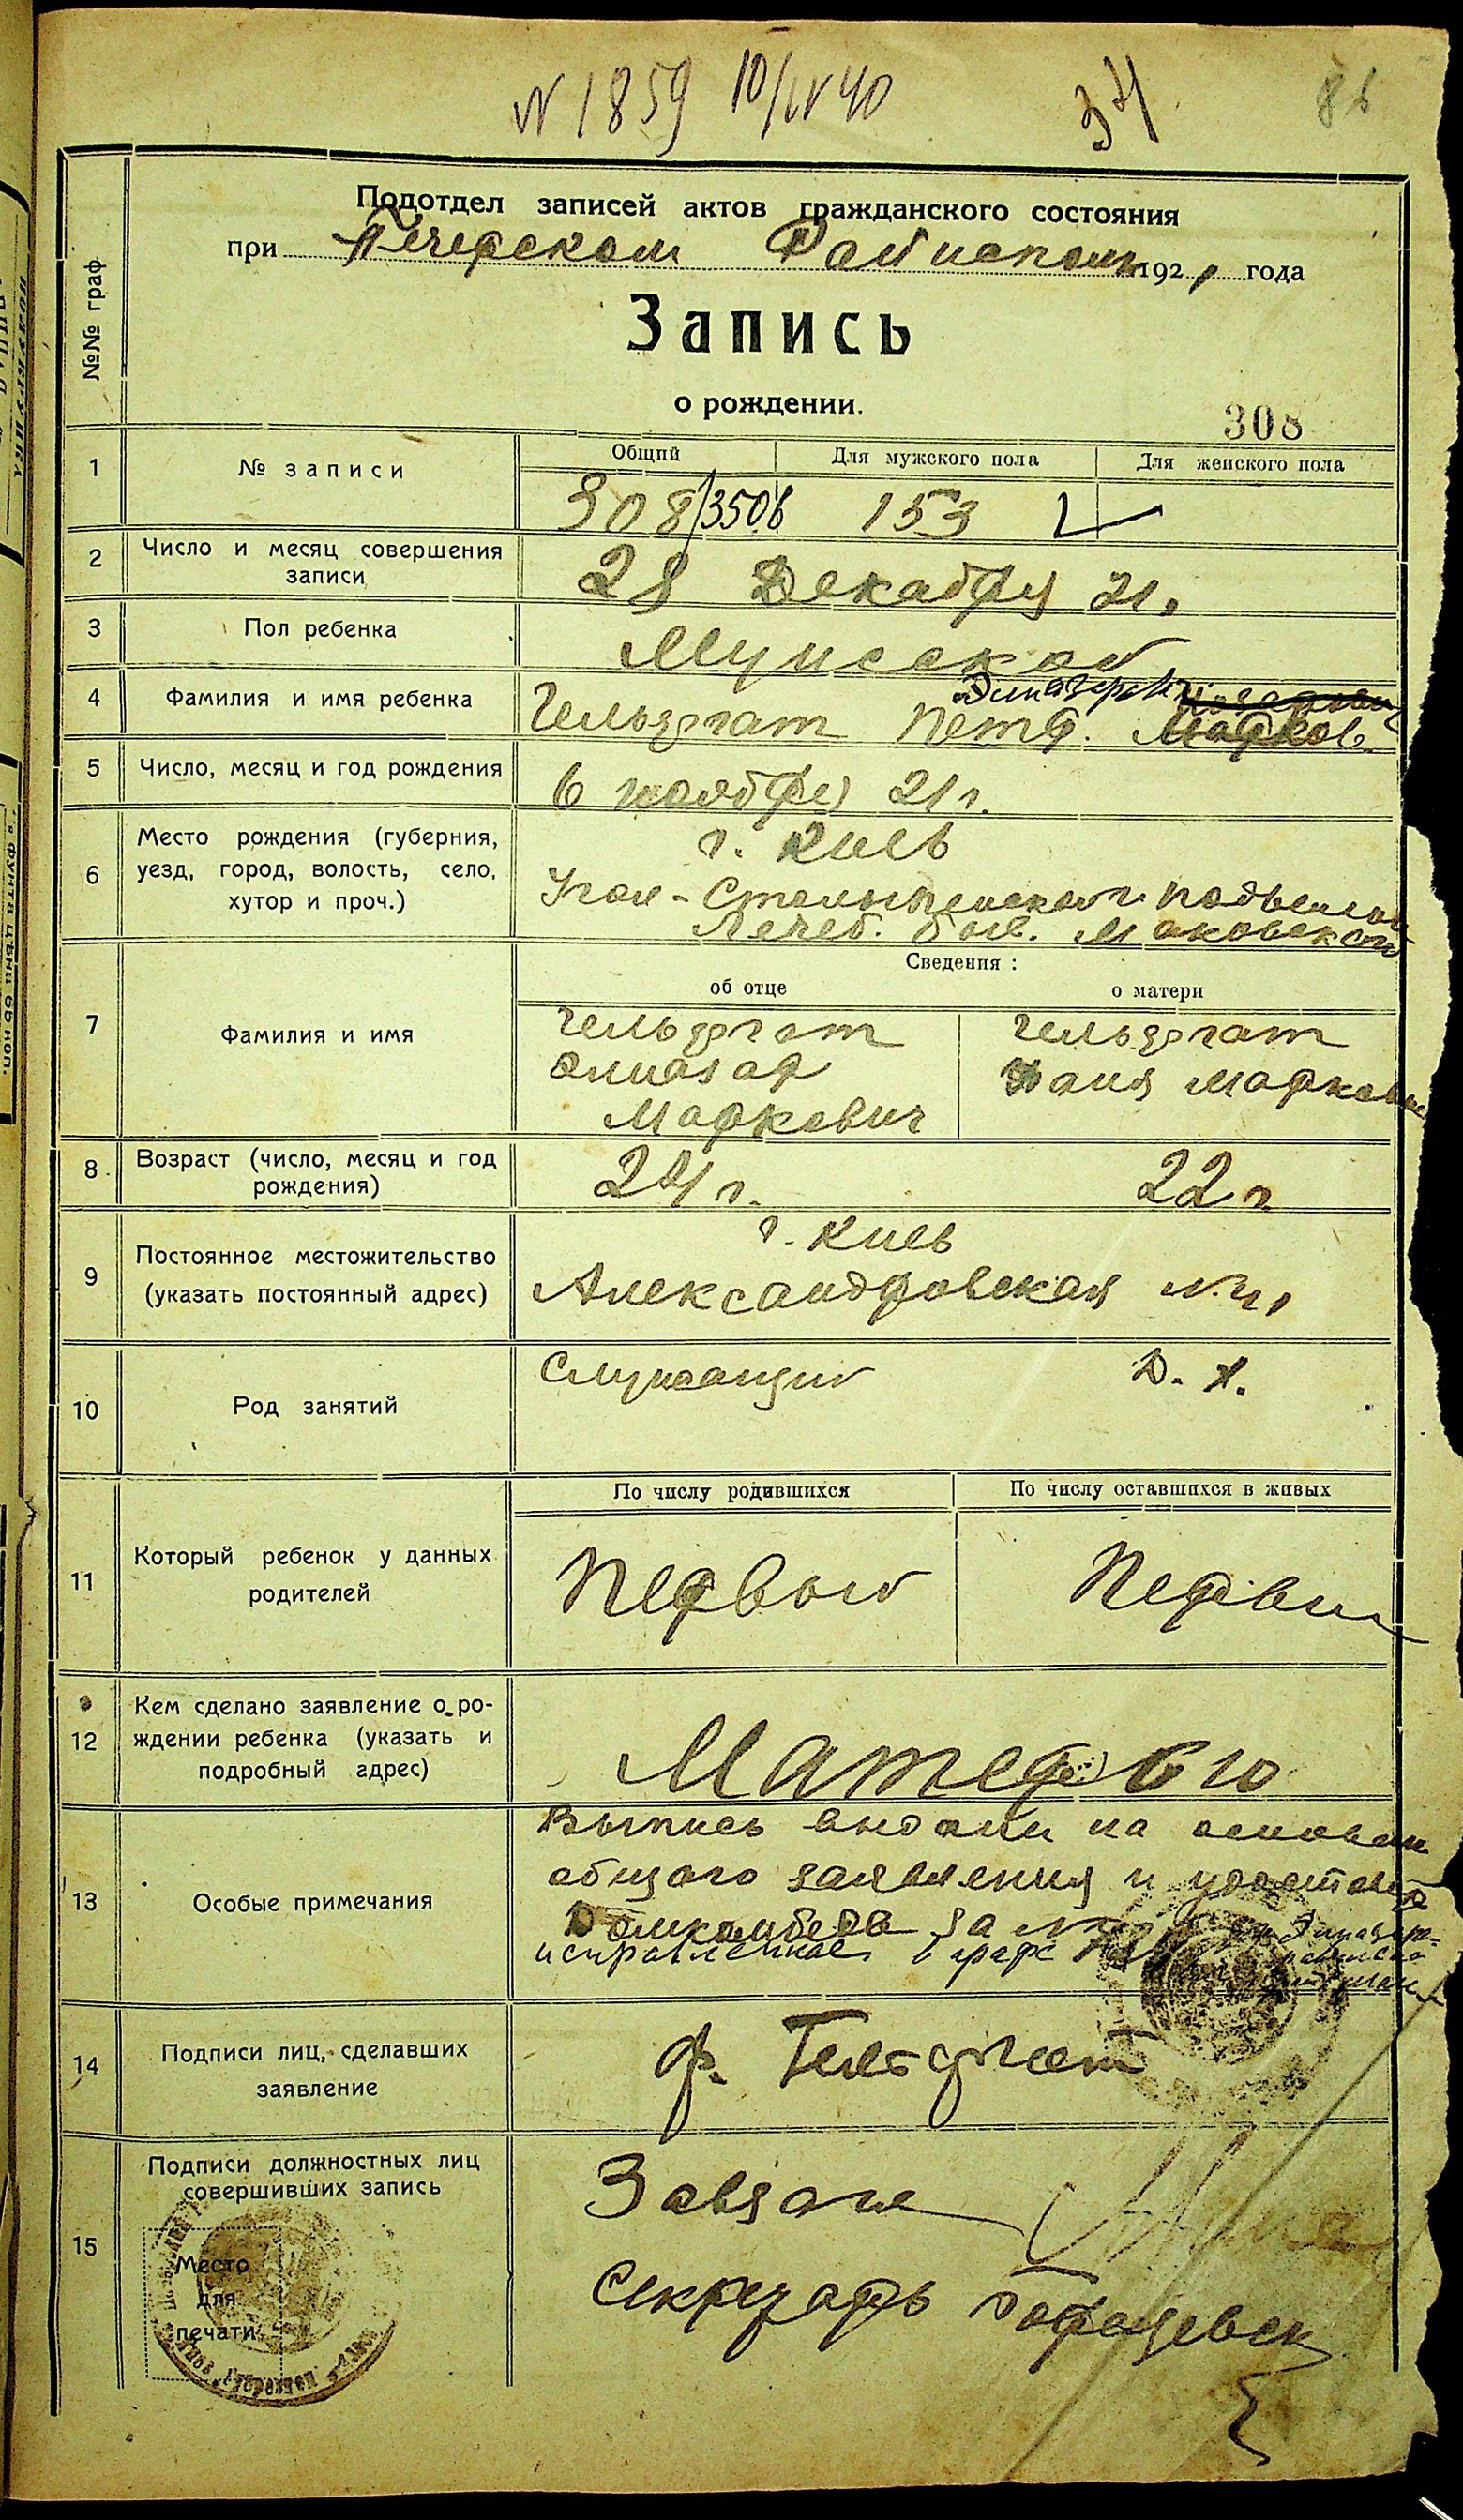 N 1859 10/IV 40
34
86
Подотдел записей актов гражданского состояния
при Печерском Райисполк. 1921 года
№№ граф
Запись
о рождении.
308
Общий Для мужского пола Для женского пола
1 № записи 308/3506 153
2 Число и месяц совершения
записи
28 Декабря 21.
3 Пол ребенка Мужской
Элиазарович
4 Фамилия и имя ребенка Гельфгат Петр. Марков.
5 Число, месяц и год рождения 6 ноября 21 г.
6 Место рождения (губерния,
уезд, город, волость, село,
хутор и проч.)
г. Киев
Угол - Столыпинской и
Лечеб. быв. Маковского
Сведения:
об отце о матери
7 Фамилия и имя
Гельфгат Гельфгат
Элиазар Фаня Марковна
Маркович
8 Возраст (число, месяц и год
рождения)
24 г. 22 г.
г. Киев
9 Постоянное местожительство
(указать постоянный адрес)
Александровская N
10 Род занятий Служащий Д. Х.
По числу родившихся По числу оставшихся в живых
11 Который ребенок у данных
родителей
Первый Первый
12 Кем сделано заявление о ро-
ждении ребенка (указать и
подробный адрес)
Матерью
13 Особые примечания
Выпись выдали на основан
общего заявления и удостовер
Домкомбеда за N
исправленное в графе
14 Подписи лиц, сделавших
заявление
Ф. Гельфгат
15 Подписи должностных лиц
совершивших запись
Завзаг
Место
для
печати
Секретарь